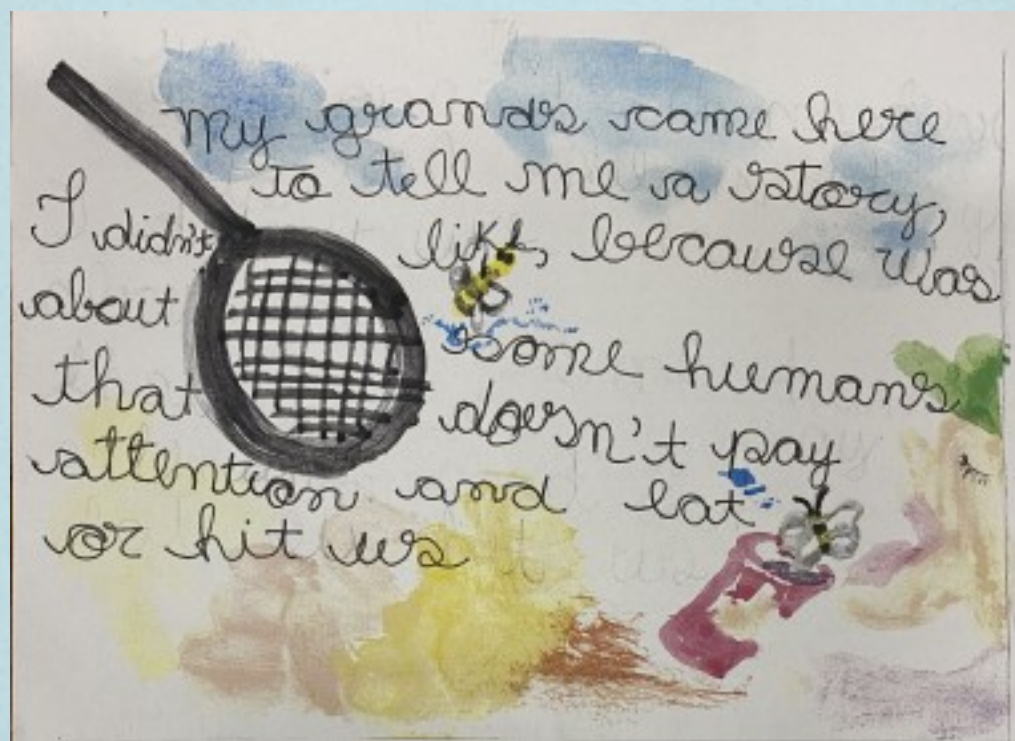 My grands came here
to tell me a story,
I didn't like, because was
about some humans
that doesn't pay
attention and eat
or hit us